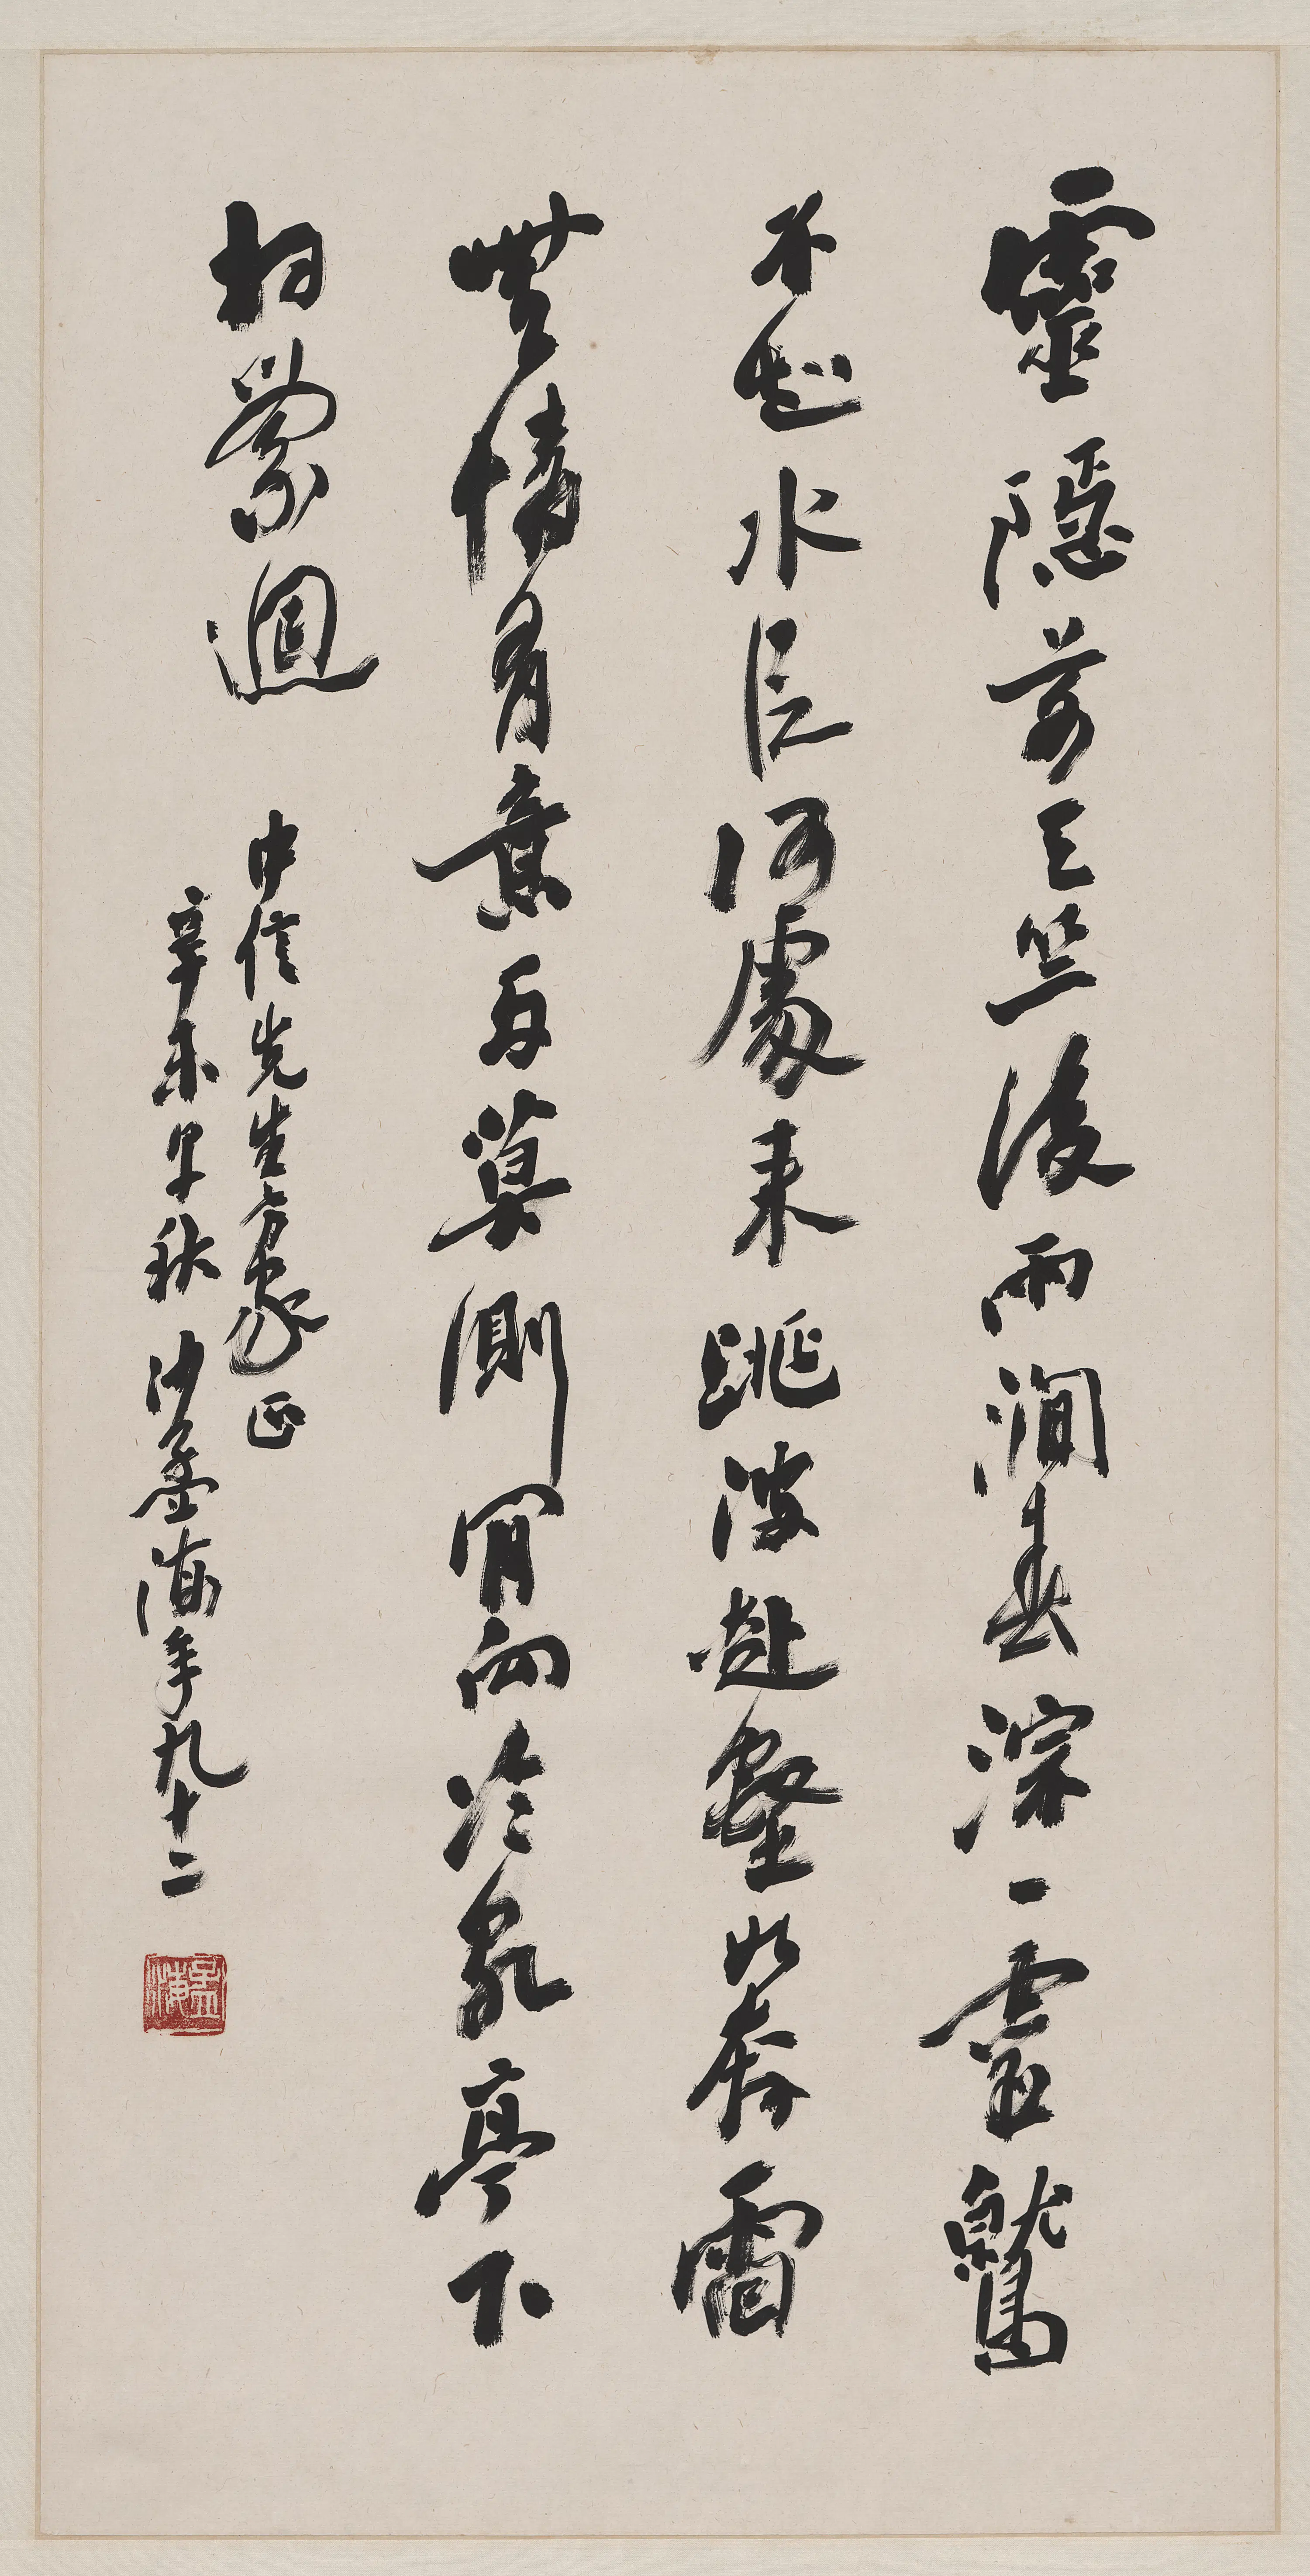 靈隱前天竺後兩澗春淙一靈鷲
不知水從何處來跳波赴壑如奔雷
無情有意兩莫測肎向冷泉亭下
相縈迴
中信先生方家正
辛未早秋沙孟海年九十二
孟海